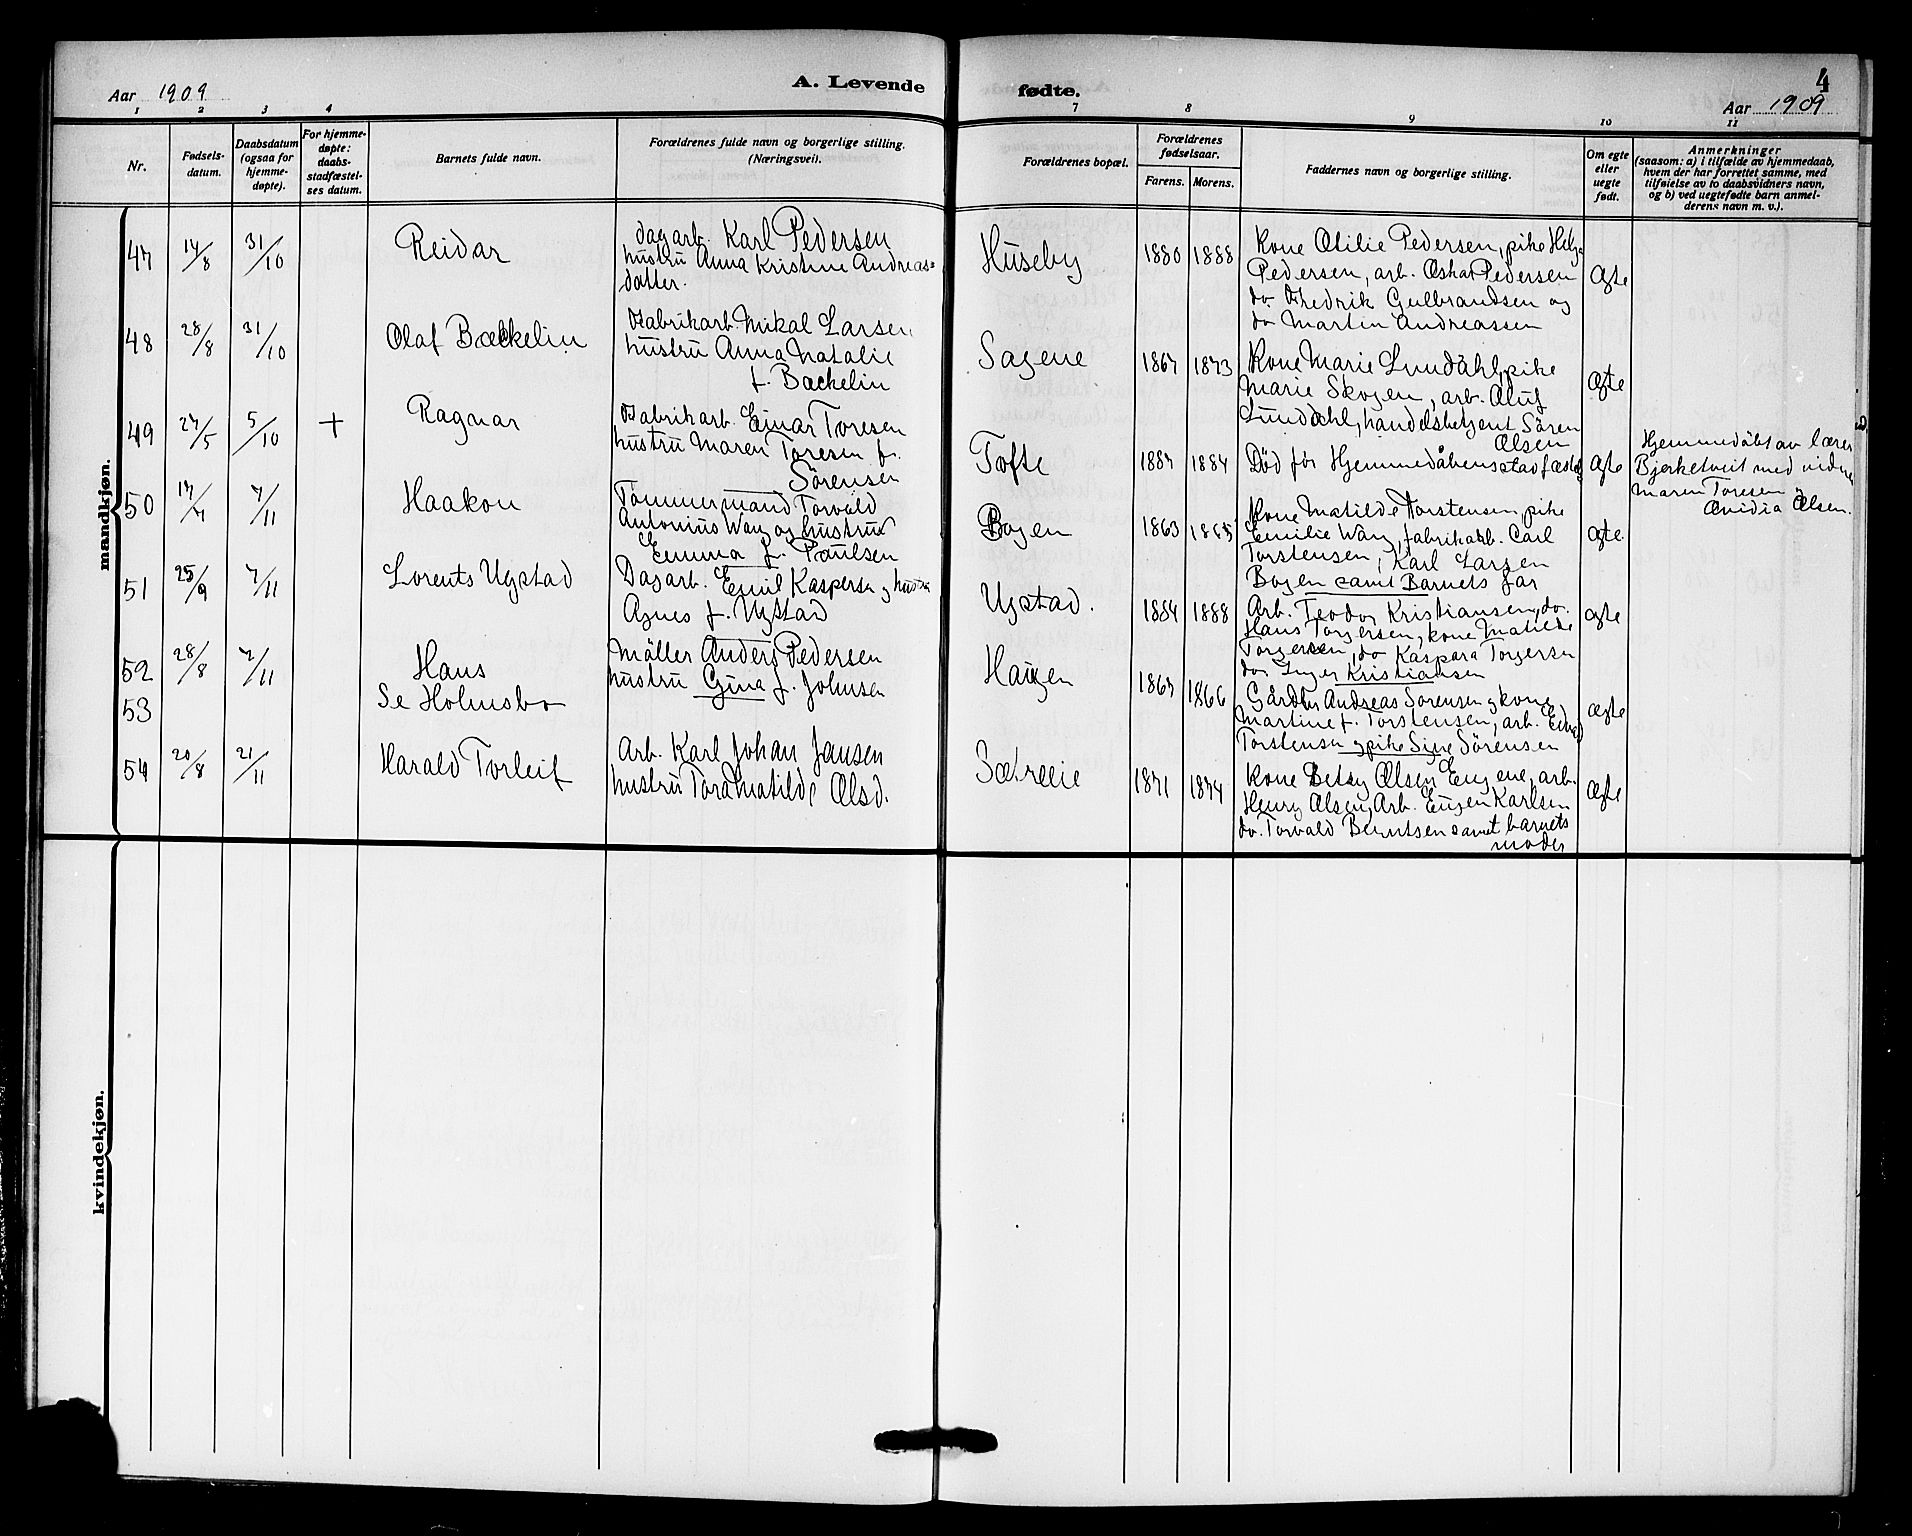 Aar 1909
A. Levende
fødte.
4
Aar 1909
1 2 3 4
7 8 9 10 11
Nr.
Fødsels-
datum.
Daabsdatum
(ogsaa for
hjemme-
døpte).
For hjemme-
døpte:
daabs-
stadfæstel-
ses datum.
Barnets fulde navn.
Forældrenes fulde navn og borgerlige stilling.
(Næringsvei).
Forældrenes bopæl.
Forældrenes
fødselsaar.
Farens. Morens.
Faddernes navn og borgerlige stilling.
Om egte
eller
uegte
født.
Anmerkninger
(saasom: a) i tilfælde av hjemmedaab,
hvem der har forrettet samme, med
tilføielse av to daabsvidners navn,
og b) ved uegtefødte barn anmel-
derens navn m. v.).
mandkjøn.
47 14/8 31/10
Reidar
dagarb. Karl Pedersen
hustru Anna Kristine Andreas=
datter.
Huseby
1880 1888
Kone Otilie Pedersen, pike Helga
Pedersen, arb. Oskar Pedersen
do Fredrik Gulbrandsen og
do Martin Andreassen
ægte
48 28/8 31/10
Olaf Backelin
Fabrikarb. Mikal Larsen
hustru Anna Natalie
f. Backelin
Sagene
1867 1873
Kone Marie Lundahl, pike
Marie Skogen, arb. Oluf
Lunddahl, handelsbetjent Sören
Olsen
ægte
49 27/5 5/10 +
Ragnar
Fabrikarb. Einar Toresen
hustru Maren Toresen f.
Sörensen
Tofte
1887 1884
Död för Hjemmedåbens stadfæstelse
ægte
Hjemmedöbt av lærer
Bjerketveit med vidne
Maren Toresen
Ovidia Olsen.
50 17/7 7/11
Haakon
Tömmermand Torvald
Antonius Wang og hustru
Emma f. Paulsen
Bogen
1863 1865
Kone Matilde Torstensen, pike
Emilie Wang, fabrikarb. Carl
Torstensen, Karl Larsen
Bogen samt Barnets far
ægte.
51 25/9 7/11
Lorents Ugstad
Dagarb. Emil Kaspersen og hustru
Agnes f. Ugstad
Ugstad.
1884 1888
Arb. Teodor Kristiansen, do.
Hans Torgersen, kone Matilde
Torgersen, do Kaspara Torgersen
do Inger Kristiansen
ægte
52 28/8 7/11
Hans
Möller Anders Pedersen
hustru Gina f. Johnsen
Haugen
1867 1866
Gårdbr Andreas Sörensen og kone
Martine f. Torstensen, arb. Edvard
Torstensen og pike Sine Sörensen
ægte
53
Se Holmsbo
54 20/8 21/11
Harald Torleif
Arb. Karl Johan Jansen
hustru Tora Matilde Olsd.
Sætreeie
1871 1874
Kone Betsy Olsen Eugene, arb.
Henry Olsen, Arb. Eugen Karlsen
do. Torvald Berntsen samt barnets
moder
ægte
kvindekjøn.